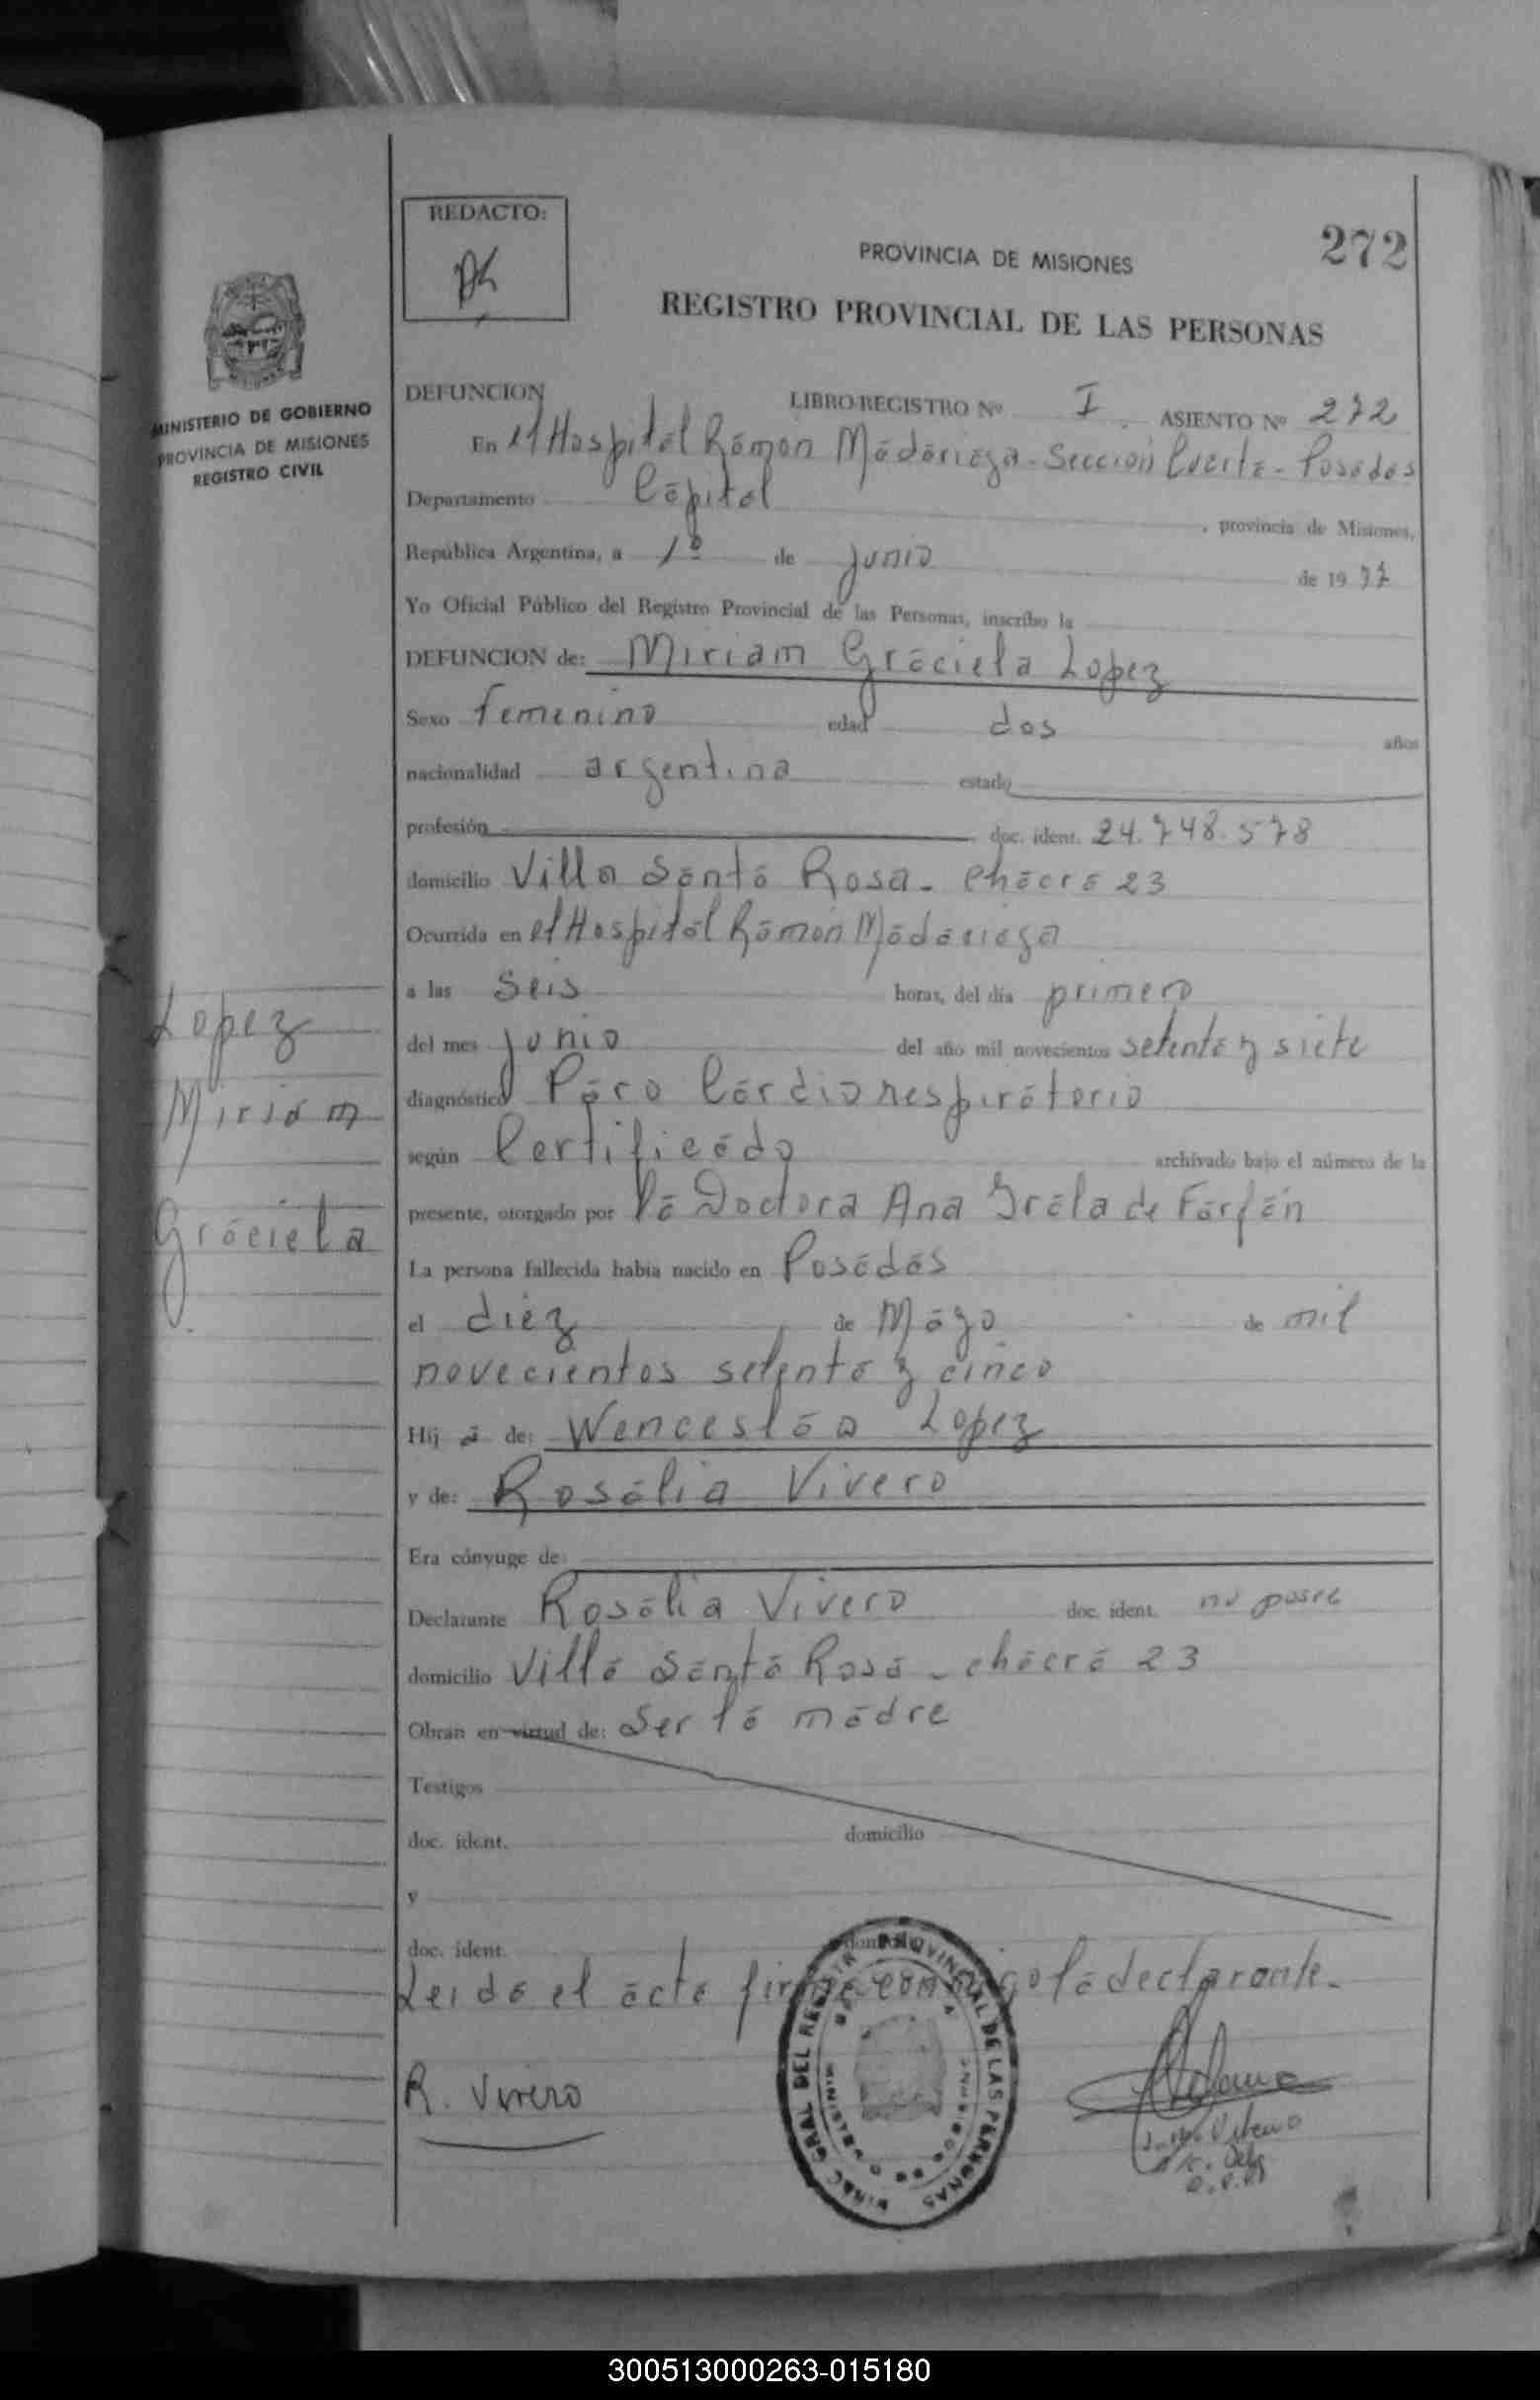 REDACTO:
272
PROVINCIA DE MISIONES
REGISTRO PROVINCIAL DE LAS PERSONAS
MINISTERIO DE GOBIERNO
PROVINCIA DE MISIONES
REGISTRO CIVIL
DEFUNCION LIBRO/REGISTRO Nº I. ASIENTO Nº 272
En el Hospital Ramon Madariaga - Sección Cuarta - Posadas
Departamento Capital, provincia de Misiones,
República Argentina, a 1º de junio de 1977
Yo Oficial Público del Registro Provincial de las Personas, inscribo la
DEFUNCION de: Miriam Graciela Lopez
Sexo femenino edad dos años
nacionalidad argentina estado
profesión doc. ident. 24.748.578
domicilio Villa Santa Rosa - chacra 23
Ocurrida en el Hospital Ramón Madariaga
a las seis horas, del día primero
del mes junio del año mil novecientos setenta y siete
diagnóstico Paro Cardiorespiratorio
según Certificado archivado bajo el número de la
presente, otorgado por la Doctora Ana Irala de Farfán
La persona fallecida había nacido en Posadas
el diez de Mayo de mil
novecientos setenta y cinco
Hij a de: Wenceslao Lopez
y de: Rosalia Vivero
Era cónyuge de:
Declarante Rosalia Vivero doc. ident. no posee
domicilio Villa Santa Rosa - chacra 23
Obran en virtud de: ser la madre
Testigos
doc. ident. domicilio
y
doc. ident.
Leida el acta firma conmigo la declarante.
R. Vivero
Lopez
Miriam
Graciela
DIREC. GRAL DEL REGISTRO PROVINCIAL DE LAS PERSONAS
300513000263-015180